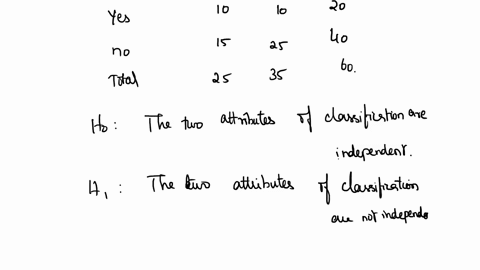 Yes 10 10 20
no 15 25 40
Total 25 35 60.
H0 : The two attributes of classification are
independent.
H1 : The two attributes of classification
are not independe